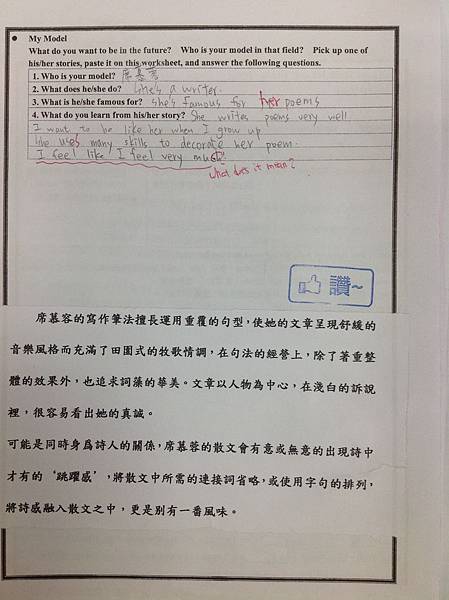 ● My Model
What do you want to be in the future? Who is your model in that field? Pick up one of
his/her stories, paste it on this worksheet, and answer the following questions.
1. Who is your model? 席慕蓉
2. What does he/she do? She's a writer.
3. What is he/she famous for? She's famous for her poems
4. What do you learn from his/her story? She writes poems very well
I want to be like her when I grow up
She uses many skills to decorate her poem.
I feel like I feel very much.
what does it mean?
讚~
席慕容的寫作筆法擅長運用重覆的句型，使她的文章呈現舒緩的
音樂風格而充滿了田園式的牧歌情調，在句法的經營上，除了著重整
體的效果外，也追求詞藻的華美。文章以人物為中心，在淺白的訴說
裡，很容易看出她的真誠。
可能是同時身為詩人的關係，席慕蓉的散文會有意或無意的出現詩中
才有的‘跳躍感’，將散文中所需的連接詞省略，或使用字句的排列，
將詩感融入散文之中，更是別有一番風味。